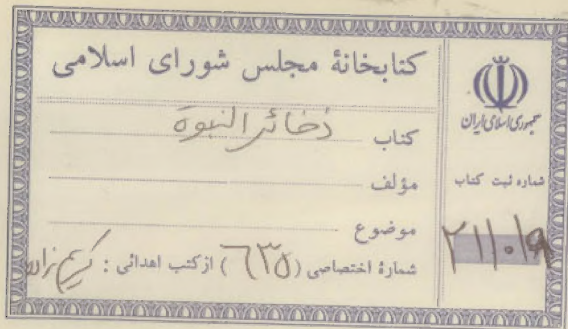 کتابخانهٔ مجلس شورای اسلامی
کتاب ذخائر النبوة
مؤلف
موضوع
شمارهٔ اختصاصی (٦٣٥) از کتب اهدائی : کریم زاده
جمهوری اسلامی ایران
شماره ثبت کتاب